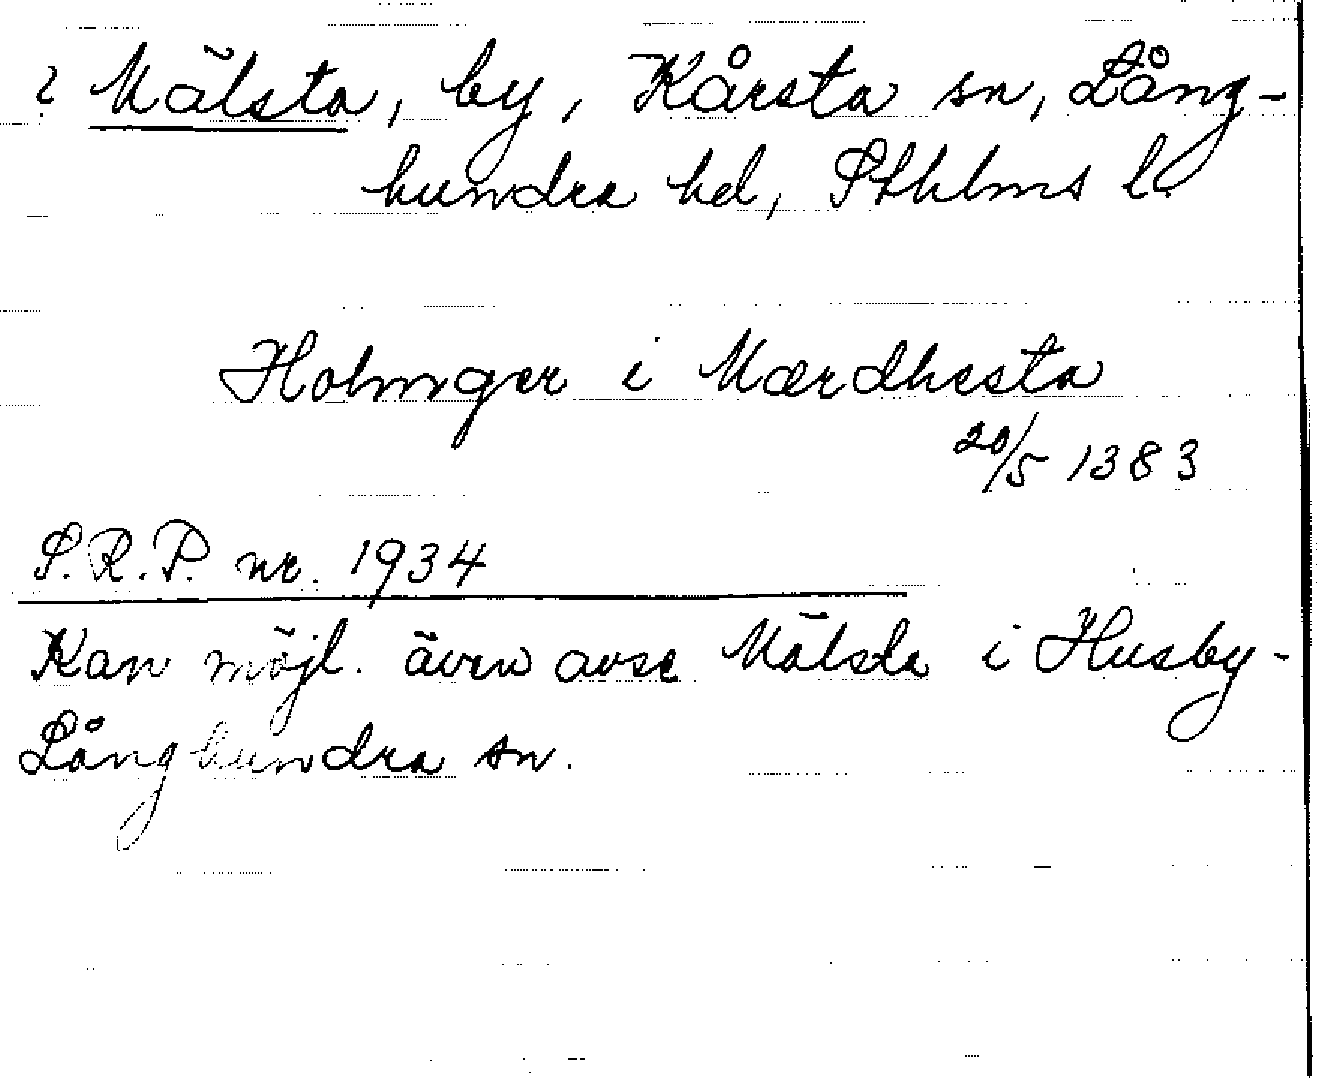 ? Mälsta, by, Kårsta sn, Lång-
hundra hd, Sthlms l.
Holmger i Mærdhesta
20/5 1383
S.R.P. nr. 1934
Kan möjl. även avse Mälsta i Husby-
Långhundra sn.